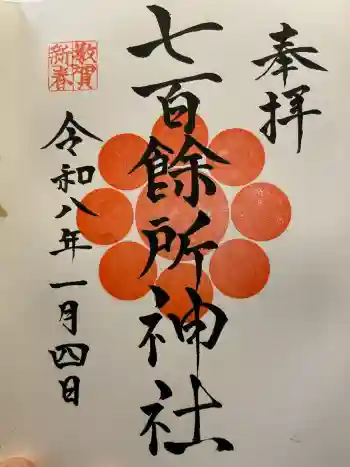 奉拝
七百餘所神社
令和八年一月四日
敬賀新春